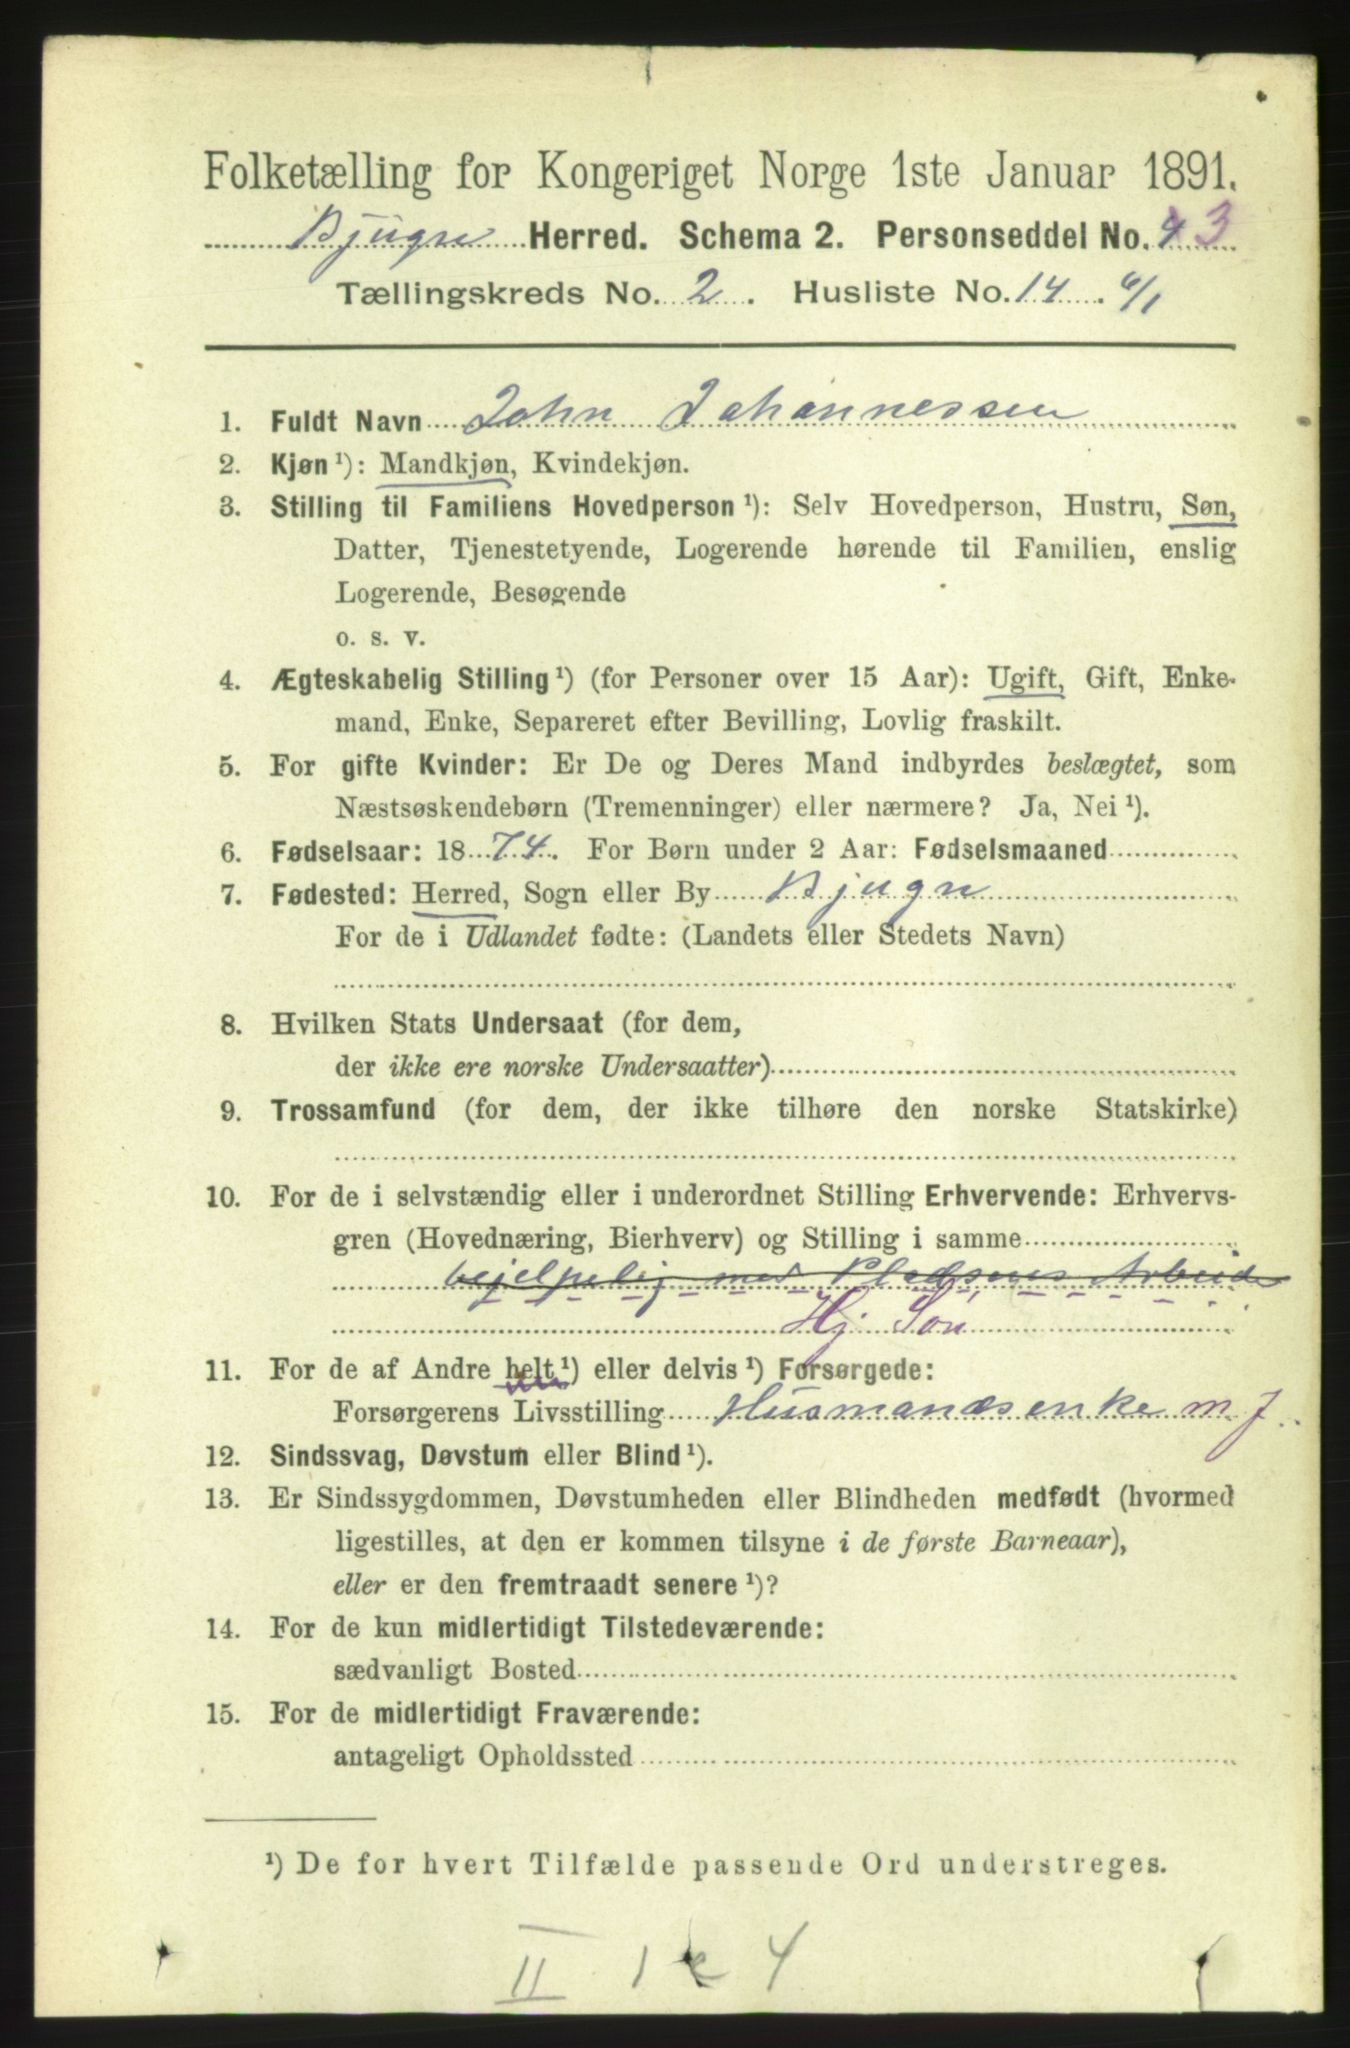 Folketælling for Kongeriget Norge 1ste Januar 1891.
Bjugn Herred. Schema 2. Personseddel No. 3
Tællingskreds No. 2. Husliste No. 14. 6/1
1. Fuldt Navn John Johannessen
2. Kjøn ¹): Mandkjøn, Kvindekjøn.
3. Stilling til Familiens Hovedperson ¹): Selv Hovedperson, Hustru, Søn,
Datter, Tjenestetyende, Logerende hørende til Familien, enslig
Logerende, Besøgende
o. s. v.
4. Ægteskabelig Stilling ¹) (for Personer over 15 Aar): Ugift, Gift, Enke-
mand, Enke, Separeret efter Bevilling, Lovlig fraskilt.
5. For gifte Kvinder: Er De og Deres Mand indbyrdes beslægtet, som
Næstsøskendebørn (Tremenninger) eller nærmere? Ja, Nei ¹).
6. Fødselsaar: 1874. For Børn under 2 Aar: Fødselsmaaned
7. Fødested: Herred, Sogn eller By Bjugn
For de i Udlandet fødte: (Landets eller Stedets Navn)
8. Hvilken Stats Undersaat (for dem,
der ikke ere norske Undersaatter)
9. Trossamfund (for dem, der ikke tilhøre den norske Statskirke)
10. For de i selvstændig eller i underordnet Stilling Erhvervende: Erhvervs-
gren (Hovednæring, Bierhverv) og Stilling i samme
behjelpelig med Pladsens Arbeide
Hj. Søn
11. For de af Andre helt ¹) eller delvis ¹) Forsørgede:
Forsørgerens Livsstilling Husmandsenke m. J.
12. Sindssvag, Døvstum eller Blind ¹).
13. Er Sindssygdommen, Døvstumheden eller Blindheden medfødt (hvormed
ligestilles, at den er kommen tilsyne i de første Barneaar),
eller er den fremtraadt senere ¹)?
14. For de kun midlertidigt Tilstedeværende:
sædvanligt Bosted
15. For de midlertidigt Fraværende:
antageligt Opholdssted
¹) De for hvert Tilfælde passende Ord understreges.
II 1 k 4